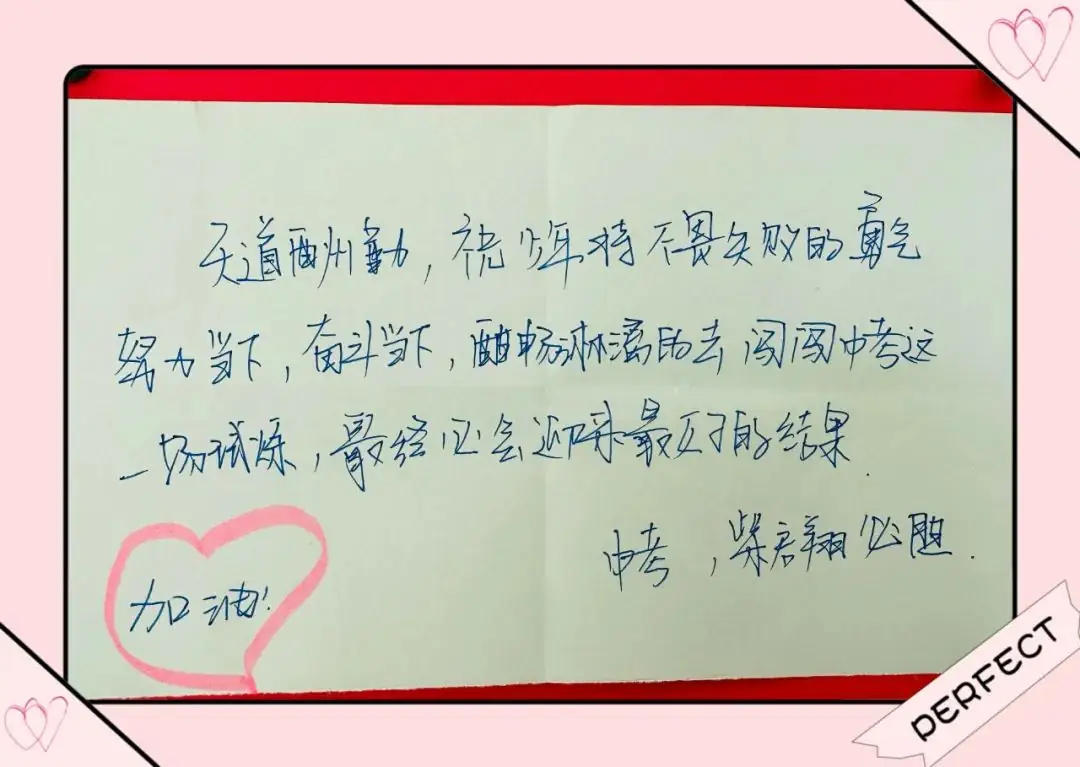 天道酬勤，祝少年持不畏失败的勇气
努力当下，奋斗当下，酣畅淋漓的去闯闯中考这
一场试炼，最终必会迎来最好的结果.
中考，柴君翔必胜.
加油!
PERFECT